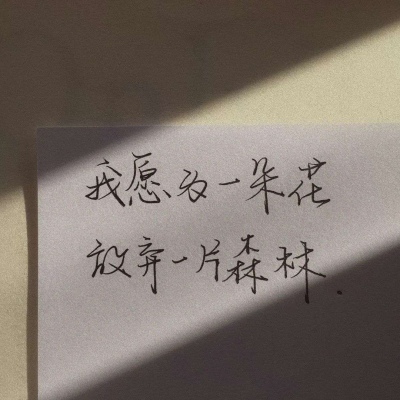 我愿为一朵花
放弃一片森林.